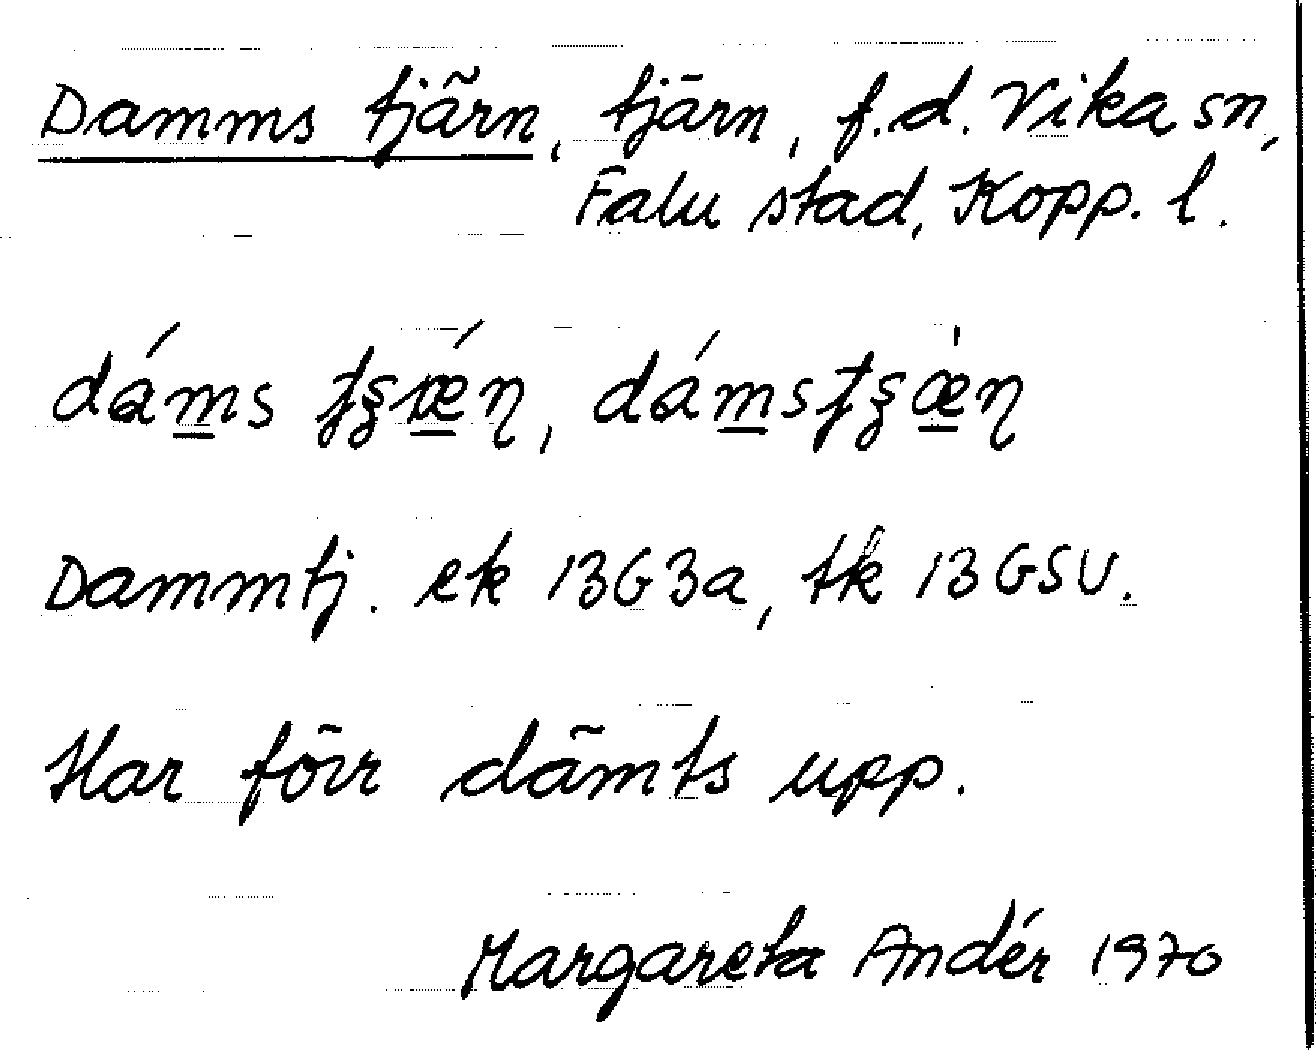 Damms tjärn, tjärn, f.d. Vika sn,
Falu stad, Kopp. l.
Dammtj. ek 13G3a, tk 13GSV.
Har förr dämts upp.
Margareta Andér 1970